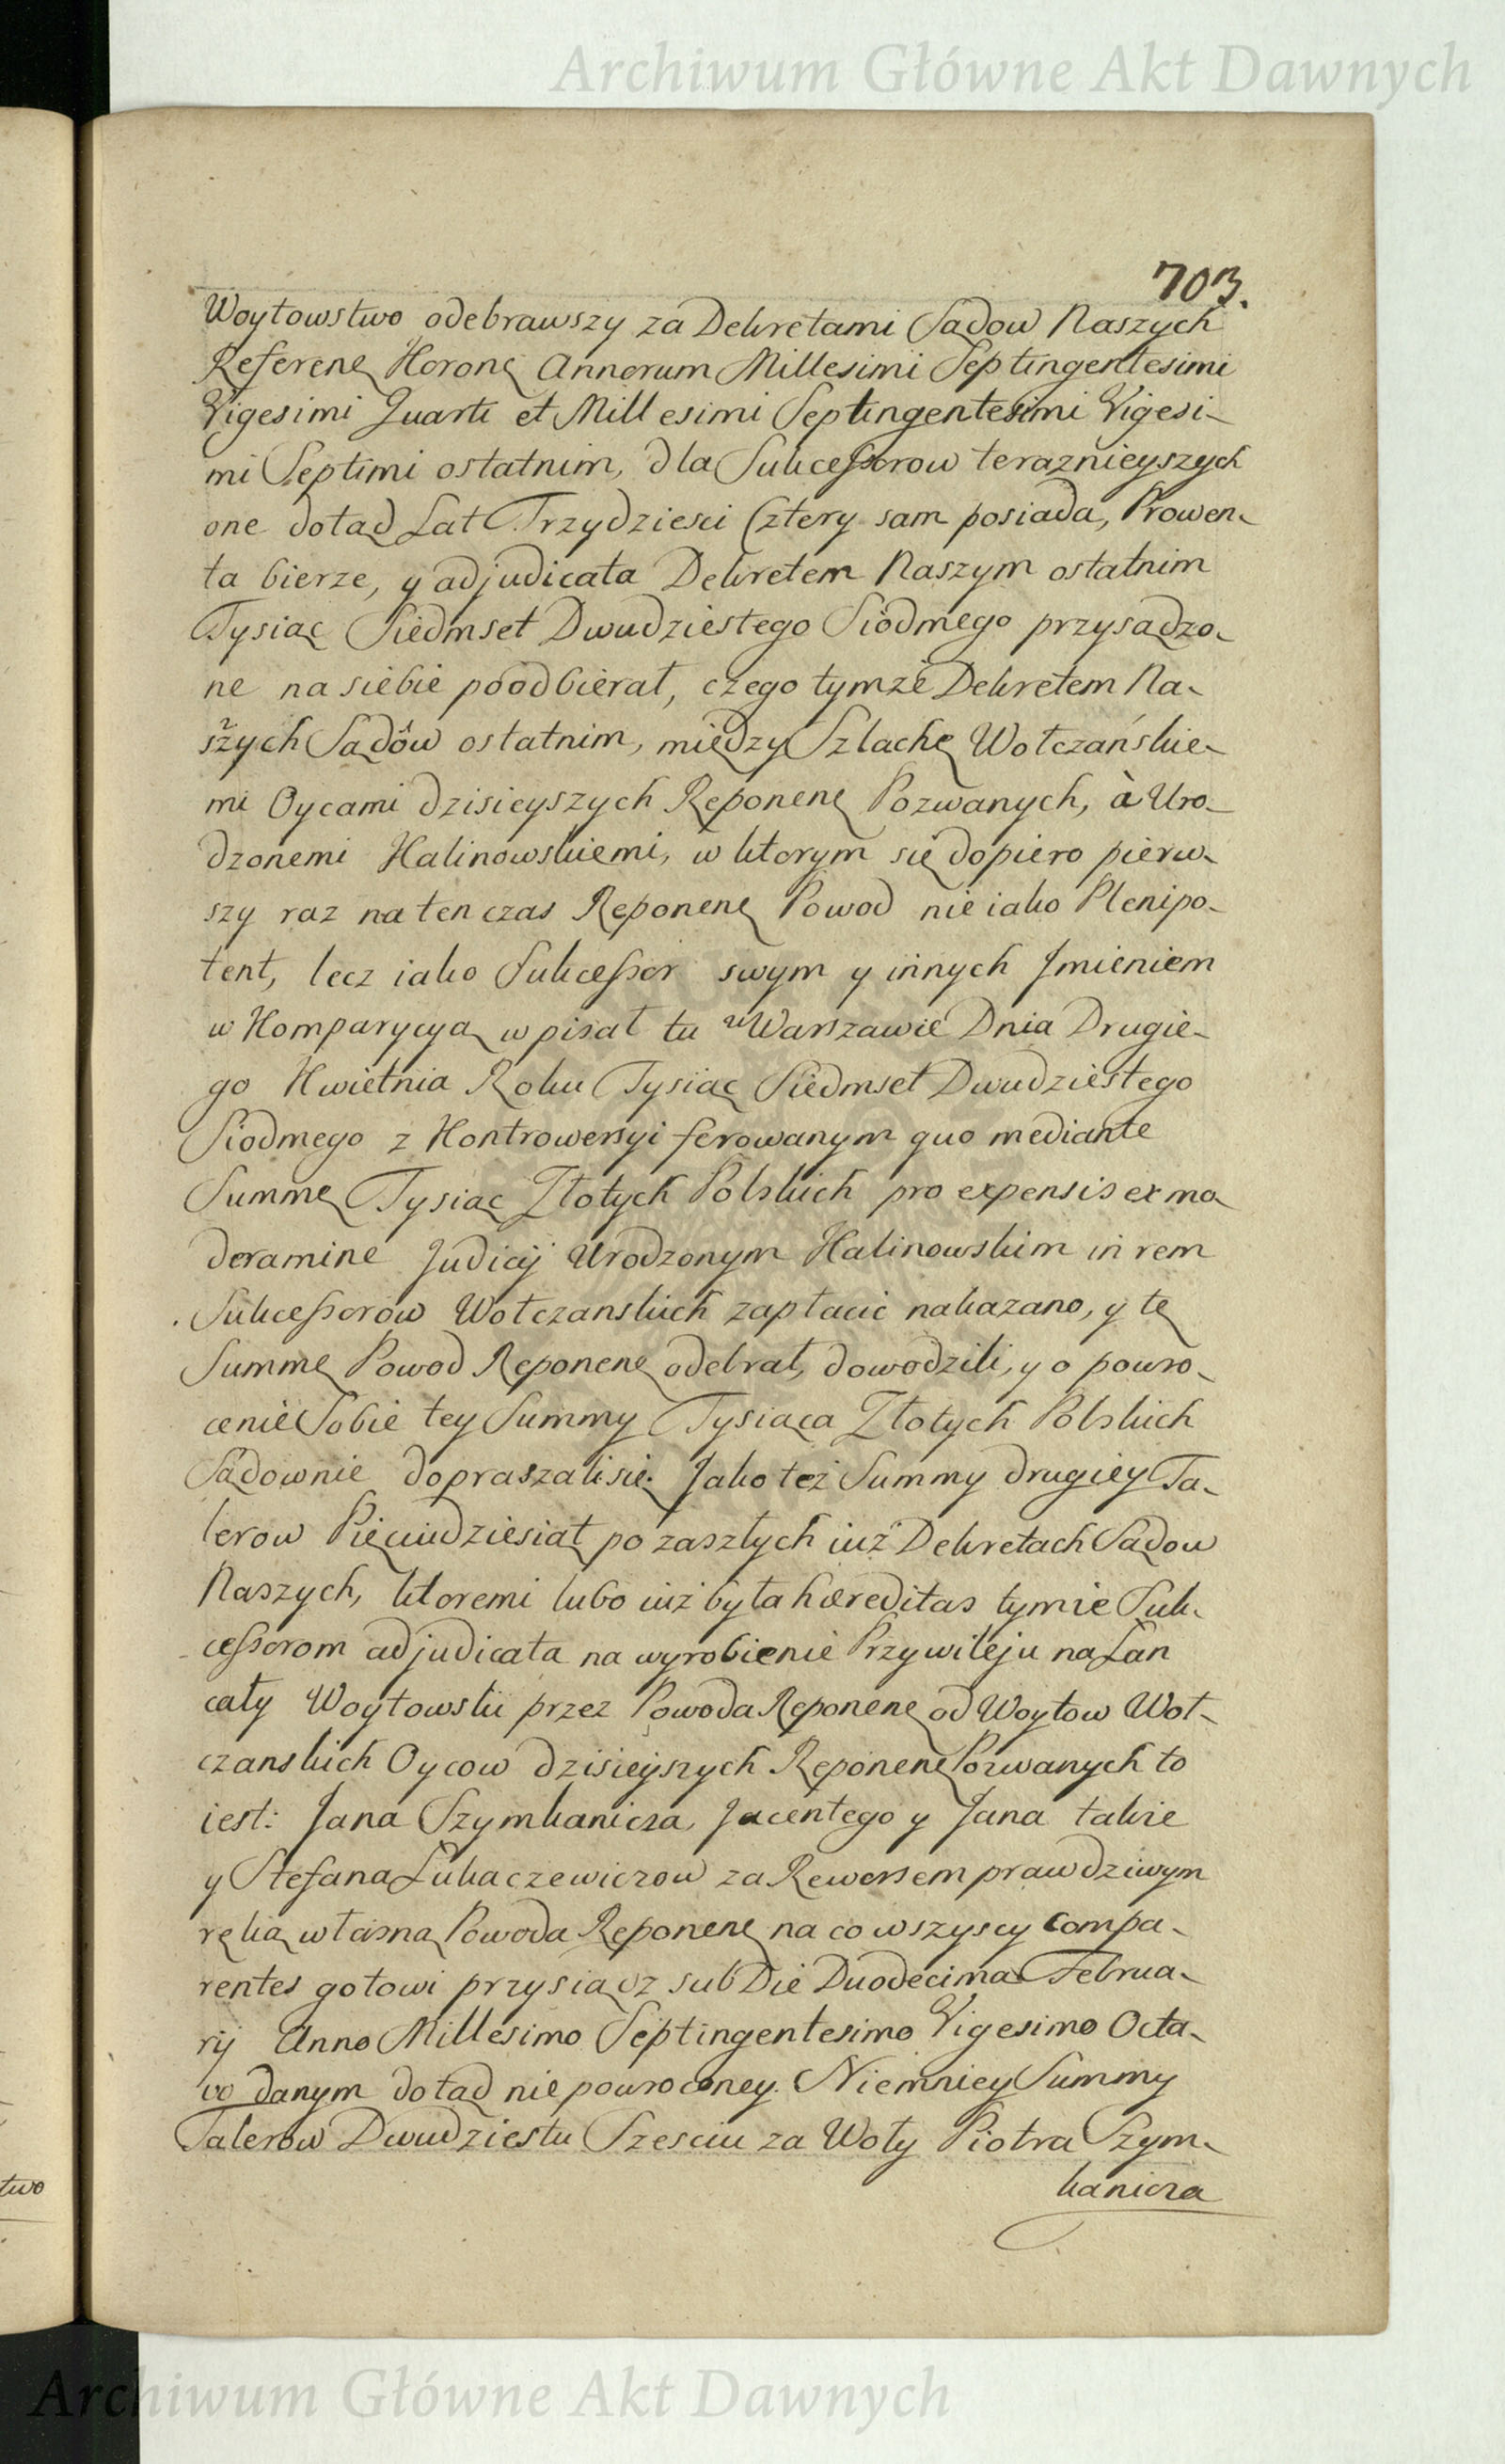 Archiwum Główne Akt Dawnych
703.
Woytowstwo odebrawszy za Dekretami Sądow Naszych
Referenę Koronę Annorum Millesimi Septingentesimi
Vigesimi Quarti et Millesimi Septingentesimi Vigesi-
mi Septimi ostatnim, dla Sukcessorow teraznieyszych
one dotąd Lat Trzydziesci Cztery sam posiada, Prowen-
ta bierze, y adjudicata Dekretem Naszym ostatnim
Tysiąc Siedmset Dwudziestego Siodmego przysądzo-
ne na siebie poodbierał, czego tymże Dekretem Na-
szych Sądow ostatnim, między Szlachę Wołczańskie-
mi Oycami dzisieyszych Reponenę Pozwanych, à Uro-
dzonemi Kalinowskiemi, w ktorym się dopiero pierw-
szy raz na ten czas Reponenę Powod nie iako Plenipo-
tent, lecz iako Sukcessor swym y innych Jmieniem
w Komparycyą wpisał tu w Warszawie Dnia Drugie-
go Kwietnia Roku Tysiąc Siedmset Dwudziestego
Siodmego z Kontrowersyi ferowanym quo mediante
Summę Tysiąc Złotych Polskich pro expensis ex mo-
deramine Judicij Urodzonym Kalinowskim in rem
Sukcessorow Wołczanskich zapłacic nakazano, y tę
Summę Powod Reponenę odebrał, dowodzili, y o powro-
cenie Sobie tey Summy Tysiąca Złotych Polskich
Sądownie dopraszali się. Jako też Summy drugiey Ta-
lerow Pięciudziesiąt po zaszłych iuż Dekretach Sądow
Naszych, ktoremi lubo iuż była hæreditas tymie Suk-
cessorom adjudicata na wyrobienie Przywileju na Łan
cały Woytowski przez Powoda Reponenę od Woytow Woł-
czanskich Oycow dzisieyszych Reponenę Pozwanych to
iest: Jana Szymkanicza, Jacentego y Jana takie
y Stefana Łukaczewiczow za Rewersem prawdziwym
ręką własną Powoda Reponenę na co wszyscy Compa-
rentes gotowi przysiądz sub Die Duodecima Februa-
rij Anno Millesimo Septingentesimo Vigesimo Octa-
vo danym dotąd nie powroconey. Niemniey Summy
Talerow Dwudziestu Szesciu za Woły Piotra Szym-
kanicza
two
Archiwum Główne Akt Dawnych